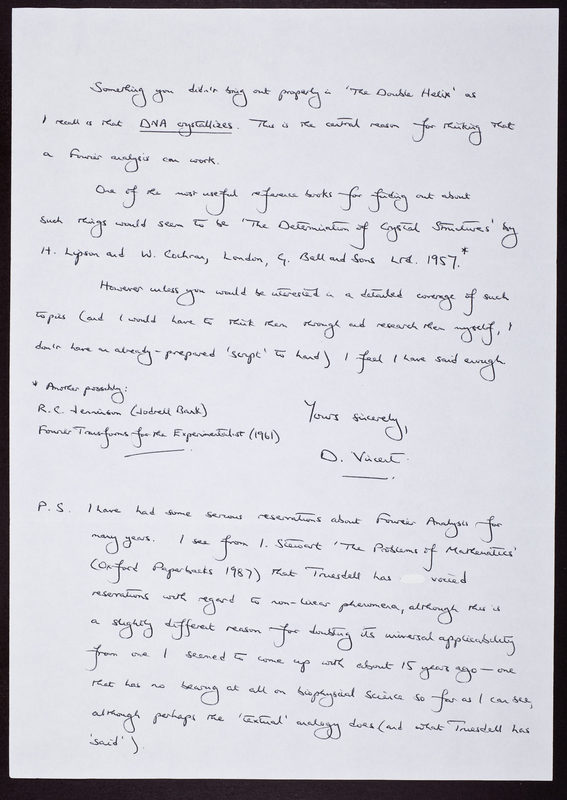 Something you didn't bring out properly in 'The Double Helix' as
I recall is that DNA crystallizes. This is the central reason for thinking that
a Fourier analysis can work.
One of the most useful reference books for finding out about
such things would seem to be 'The Determination of Crystal Structures' by
H. Lipson and W. Cochran, London, G. Bell and Sons Ltd. 1957.*
However unless you would be interested in a detailed coverage of such
topics (and I would have to think them through and research them myself, I
don't have an already-prepared 'script' to hand) I feel I have said enough
* Another possibly:
R. C. Jennison (Jodrell Bank)
Fourier Transforms for the Experimentalist (1961)
Yours sincerely,
D. Vincent.
P.S. I have had some serious reservations about Fourier Analysis for
many years. I see from I. Stewart 'The Problems of Mathematics'
(Oxford Paperbacks 1987) that Truesdell has voiced
reservations with regard to non-linear phenomena, although this is
a slightly different reason for doubting its universal applicability
from one I seemed to come up with about 15 years ago — one
that has no bearing at all on biophysical science so far as I can see,
although perhaps the 'textual' analogy does (and what Truesdell has
'said')